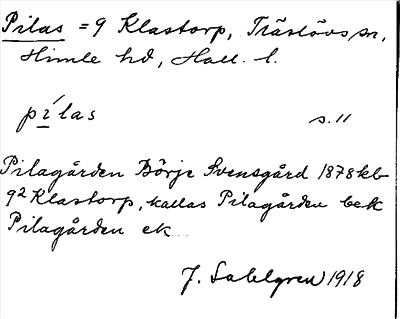 Pilas = 9 Klastorp, Träslövs sn,
Himle hd, Hall. l.
pílas s. 11
Pilagården Börje Svensgård 1878 kb
9² Klastorp, kallas Pilagården bek
Pilagården ek..
J. Sahlgren 1918